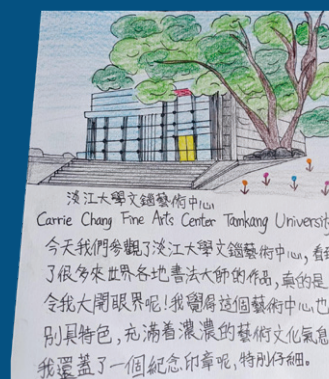 淡江大學文錙藝術中心
Carrie Chang Fine Arts Center Tamkang Universit
今天我們參觀了淡江大學文錙藝術中心,看到
了很多來世界各地書法大師的作品,真的是
令我大開眼界呢!我覺得這個藝術中心也
別具特色,充滿着濃濃的藝術文化氣息
我還蓋了一個紀念印章呢,特別仔細。